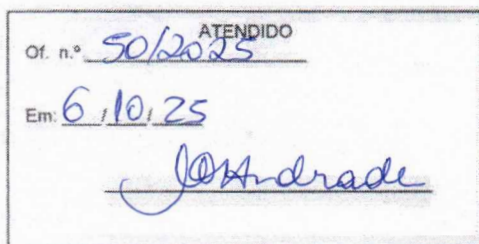 ATENDIDO
Of. n.º 50/2025
Em: 6/10/25
JOAndrade